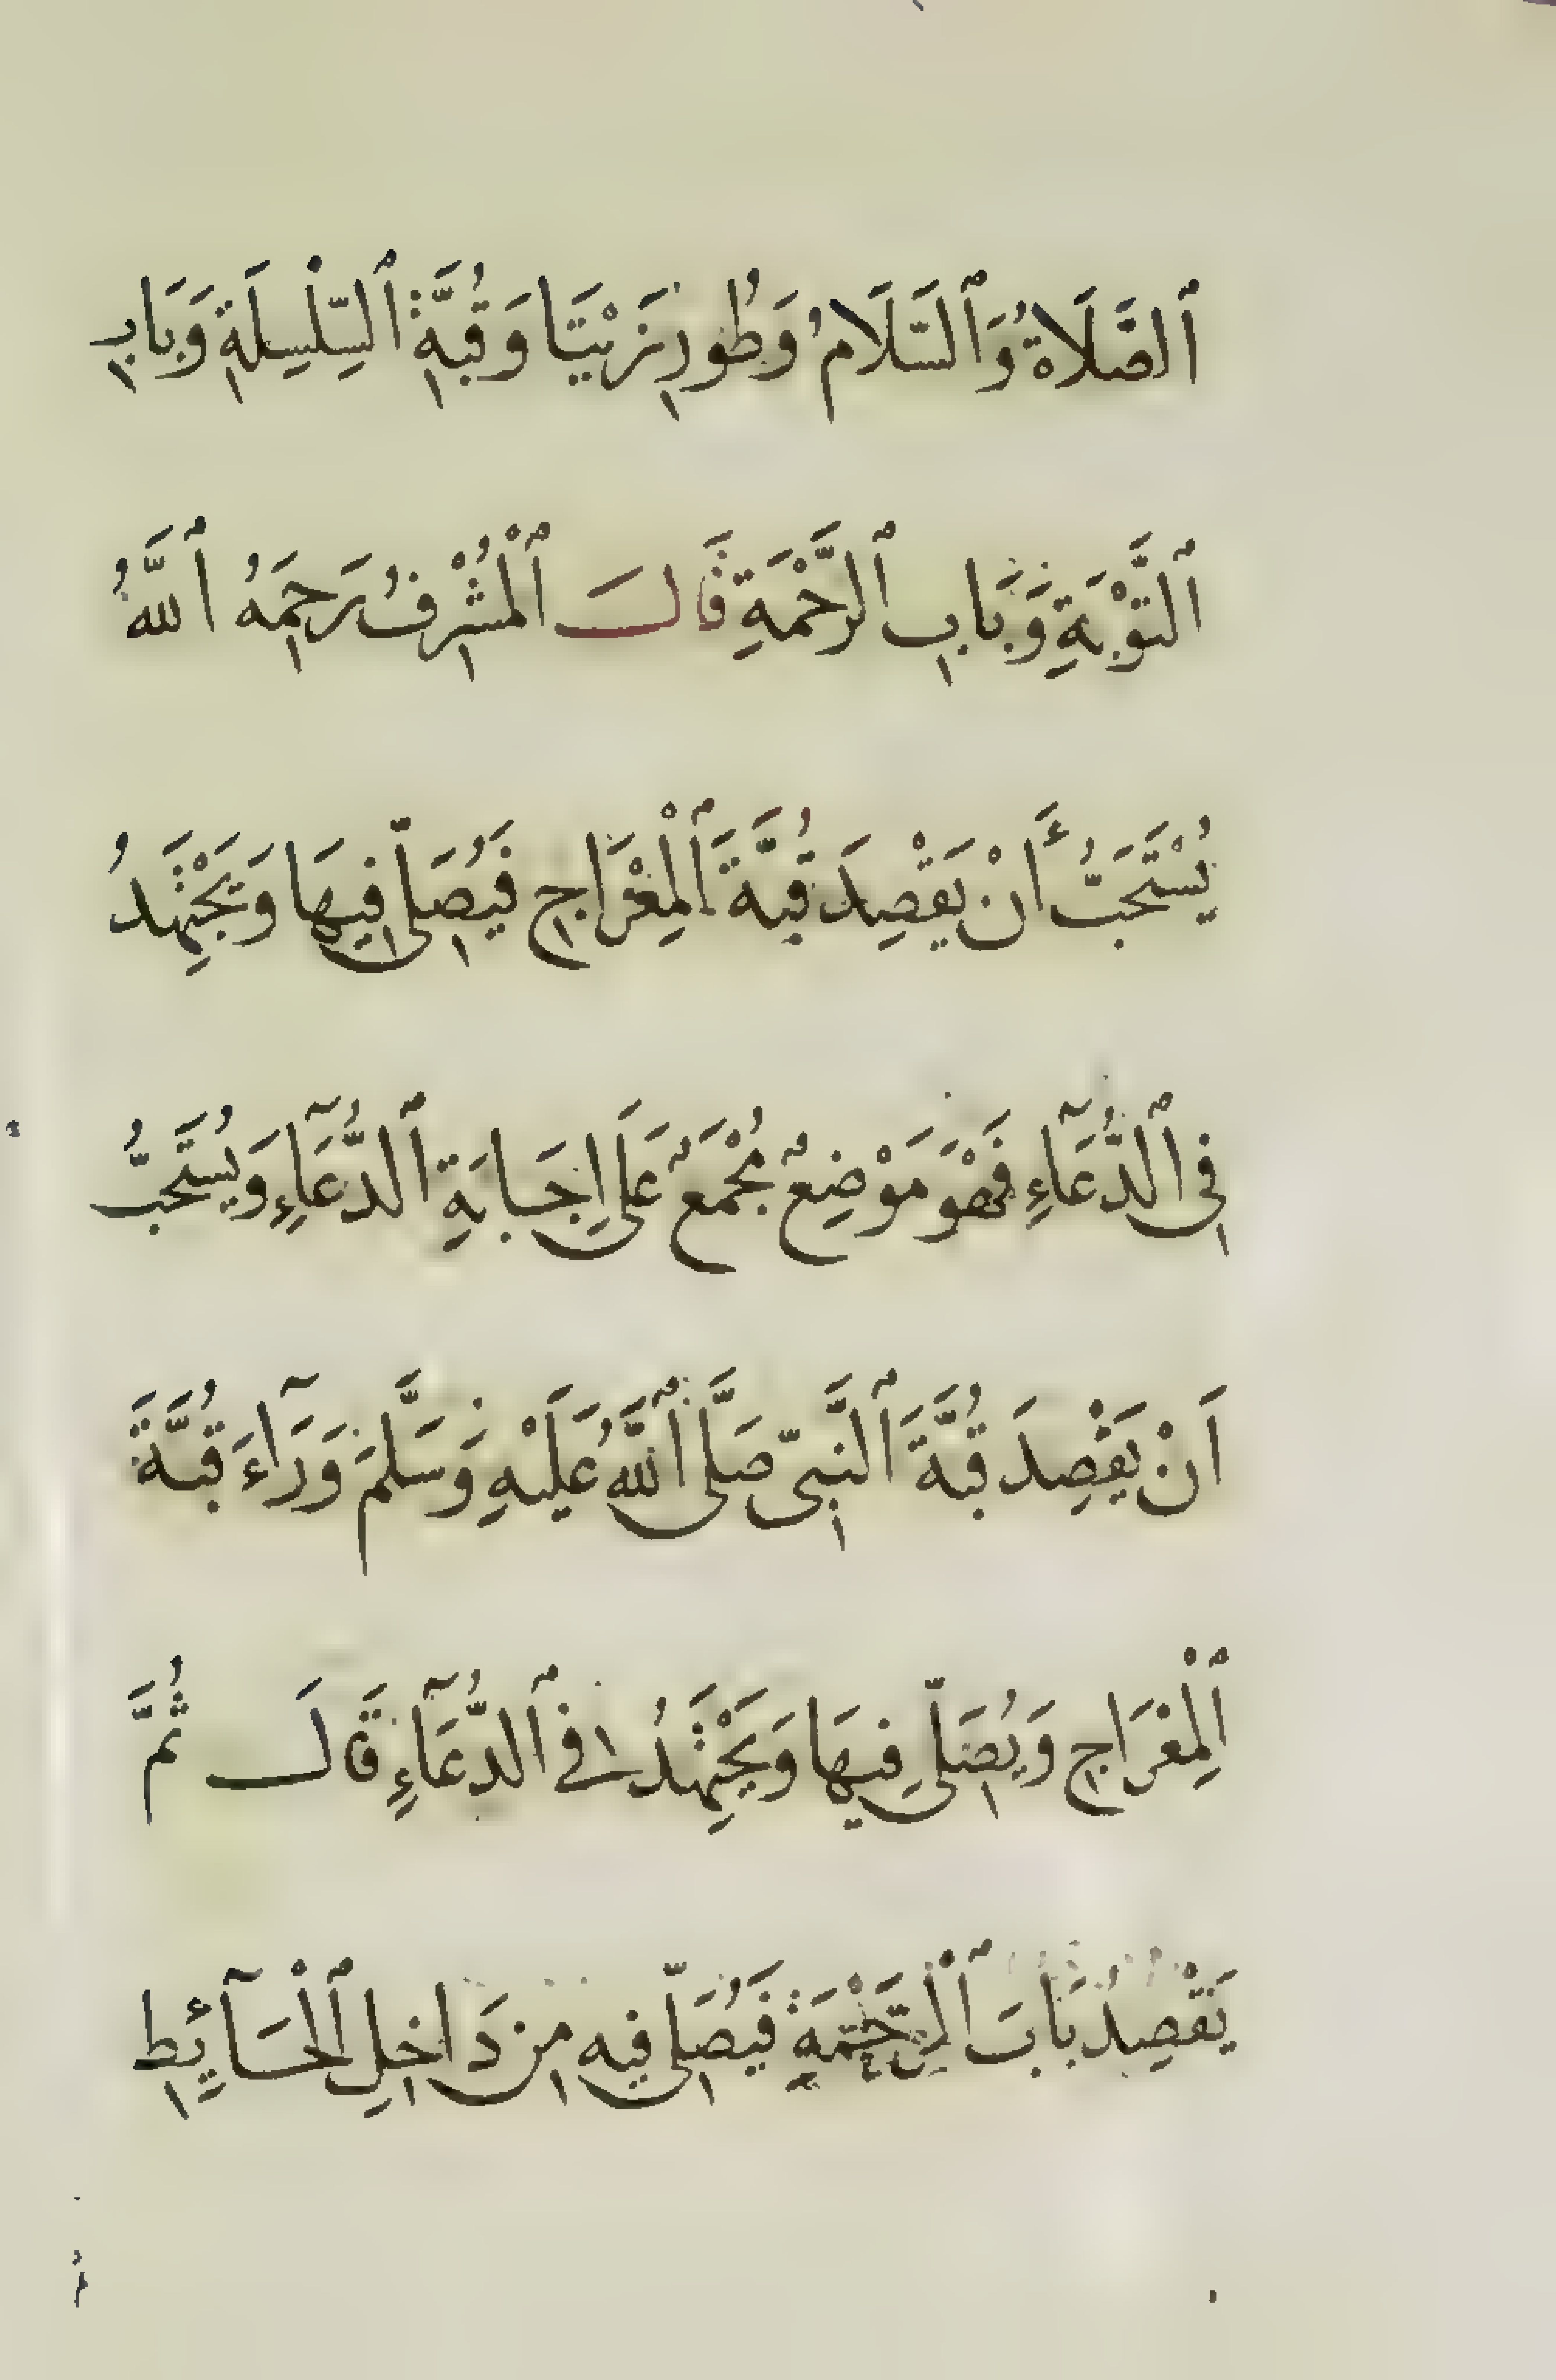 ٱلصَّلَاةُ وَٱلسَّلَامُ وَطُورِ زَيْتَا وَقُبَّةِ ٱلسِّلْسِلَةِ وَبَابِ
ٱلتَّوْبَةِ وَبَابِ ٱلرَّحْمَةِ قَالَ ٱلْمُشْرِفُ رَحِمَهُ ٱللَّهُ
يُسْتَحَبُّ أَنْ يَقْصِدَ قُبَّةَ ٱلْمِعْرَاجِ فَيُصَلِّي فِيهَا وَيَجْتَهِدُ
فِي ٱلدُّعَآءِ فَهْوَ مَوْضِعٌ مُجْمَعٌ عَلَى اِجَابَةِ ٱلدُّعَآءِ وَيُسْتَحَبُّ
اَنْ يَقْصِدَ قُبَّةَ ٱلنَّبِيِّ صَلَّى ٱللَّهُ عَلَيْهِ وَسَلَّمَ وَرَآءَ قُبَّةَ
ٱلْمِعْرَاجِ وَيُصَلِّي فِيهَا وَيَجْتَهِدُ فِي ٱلدُّعَآءِ قَالَ ثُمَّ
يَقْصِدُ بَابَ ٱلرَّحْمَةِ فَيُصَلِّي فِيهِ مِنْ دَاخِلِ ٱلْحَآئِطِ